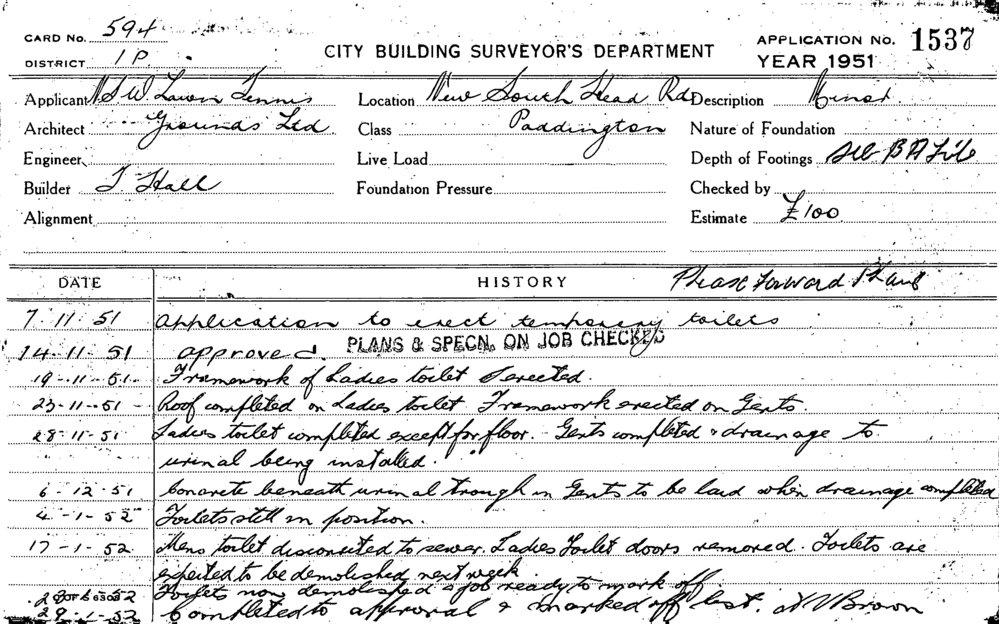 CARD No. 594
DISTRICT 1P
CITY BUILDING SURVEYOR'S DEPARTMENT
APPLICATION No. 1537
YEAR 1951
Applicant N.S.W. Lawn Tennis
Location New South Head Rd
Description Minor.
Architect Grounds Ltd
Class Paddington
Nature of Foundation
Engineer
Live Load
Depth of Footings See BA File
Builder T Hall
Foundation Pressure
Checked by
Alignment
Estimate £100
DATE HISTORY Please forward Plans
7-11-51 Application to erect temporary toilets
14-11-51 approved. PLANS & SPECN. ON JOB CHECKED
19-11-51 Framework of Ladies toilet erected.
23-11-51 Roof completed on Ladies toilet Framework erected on Gents.
28-11-51 Ladies toilet completed except for floor. Gents completed & drainage to
urinal being installed.
6-12-51 Concrete beneath urinal trough in Gents to be laid when drainage completed
4-1-52 Toilets still in position.
17-1-52 Mens toilet disconnected to sewer. Ladies Toilet doors removed. Toilets are
expected to be demolished next week.
Toilets now demolished & job ready to mark off.
29-1-52 Completed to approval & marked off list. N V Brown